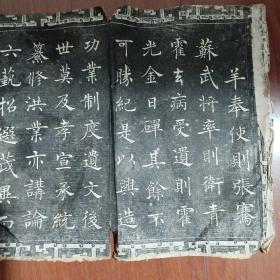 羊奉使則張騫
蘇武將率則衛青
霍去病受遺則霍
光金日磾其餘不
可勝紀是以興造
功業制度遺文後
世莫及孝宣承統
纂修洪業亦講論
六藝招選茂異而